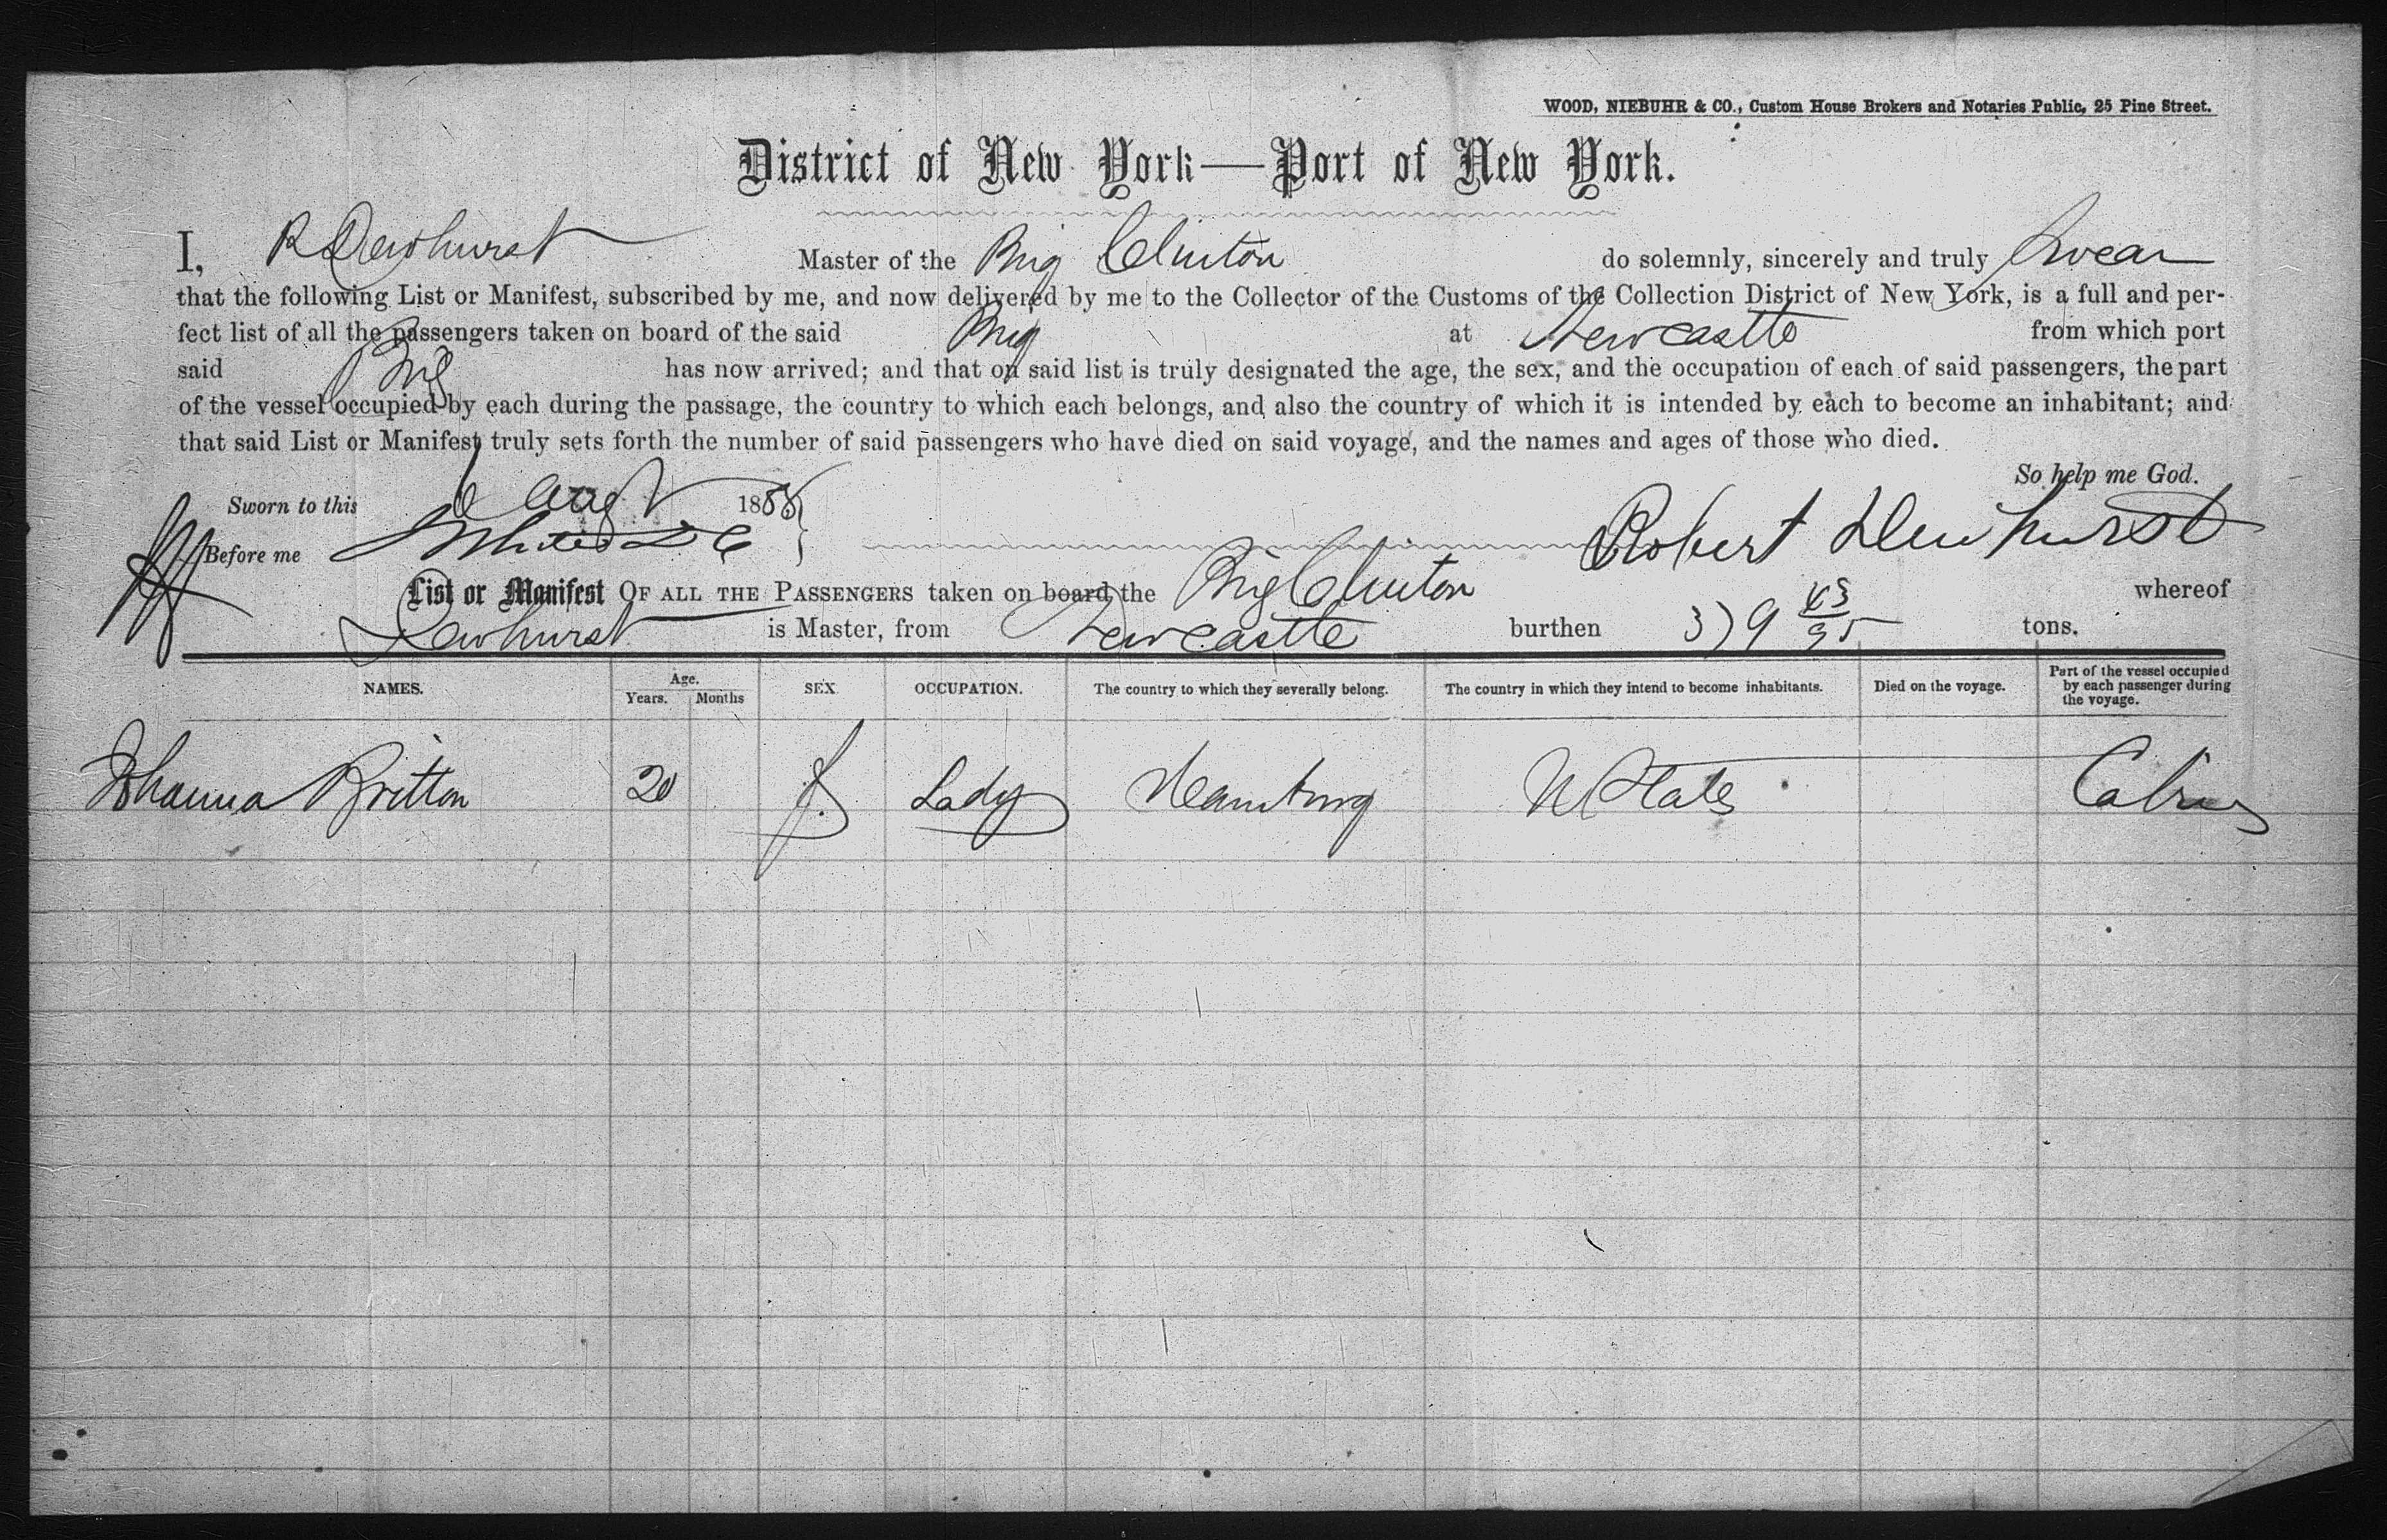 WOOD, NIEBUHR & CO., Custom House Brokers and Notaries Public, 25 Pine Street.
District of New York—Port of New York.
I, R Dewhurst Master of the Brig Clinton do solemnly, sincerely and truly Swear
that the following List or Manifest, subscribed by me, and now delivered by me to the Collector of the Customs of the Collection District of New York, is a full and per-
fect list of all the passengers taken on board of the said Brig at Newcastle from which port
said Brig has now arrived; and that on said list is truly designated the age, the sex, and the occupation of each of said passengers, the part
of the vessel occupied by each during the passage, the country to which each belongs, and also the country of which it is intended by each to become an inhabitant; and
that said List or Manifest truly sets forth the number of said passengers who have died on said voyage, and the names and ages of those who died.
So help me God.
Sworn to this Aug 188
Before me Robert Dewhurst
List or Manifest OF ALL THE PASSENGERS taken on board the Brig Clinton whereof
Dewhurst is Master, from Newcastle burthen tons.
NAMES. Age. Years. Months SEX. OCCUPATION. The country to which they severally belong. The country in which they intend to become inhabitants. Died on the voyage. Part of the vessel occupied by each passenger during the voyage.
Johanna Britton 20 f. Lady Hamburg U States Cabin